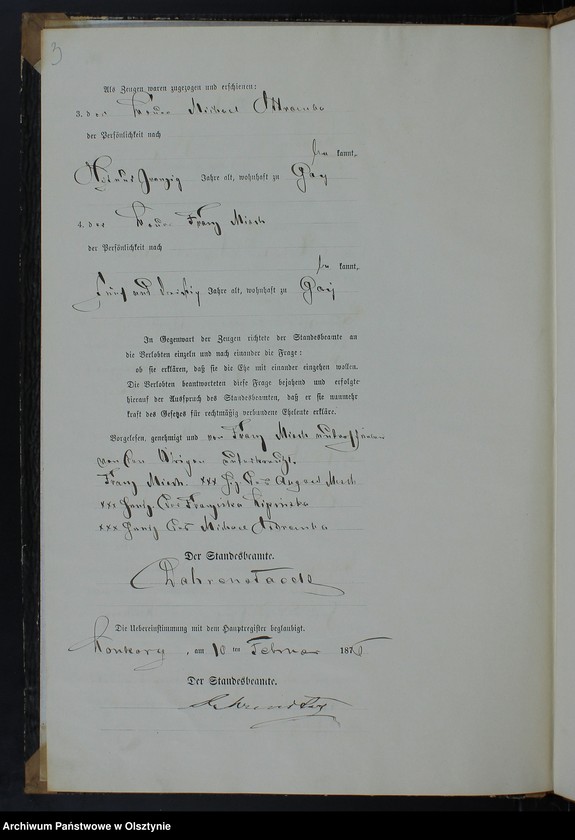 3
Als Zeugen waren zugezogen und erschienen:
3. der Michael
der Persönlichkeit nach
kannt,
Jahre alt, wohnhaft zu Gay
4. der Franz Misch
der Persönlichkeit nach
kannt,
fünf und dreißig Jahre alt, wohnhaft zu Gay
In Gegenwart der Zeugen richtete der Standesbeamte an
die Verlobten einzeln und nach einander die Frage:
ob sie erklären, daß sie die Ehe mit einander eingehen wollen.
Die Verlobten beantworteten diese Frage bejahend und erfolgte
hierauf der Ausspruch des Standesbeamten, daß er sie nunmehr
kraft des Gesetzes für rechtmäßig verbundene Eheleute erkläre.
Vorgelesen, genehmigt und von Franz Misch unterschrieben
von den Übrigen unterkreuzt.
Franz Misch. xxx Hz. des August Misch
xxx Handz. der Franziska Lipinska
xxx Handz. des Michael
Der Standesbeamte.
Die Uebereinstimmung mit dem Hauptregister beglaubigt.
, am 10 ten Februar 187
Der Standesbeamte.
Archiwum Państwowe w Olsztynie